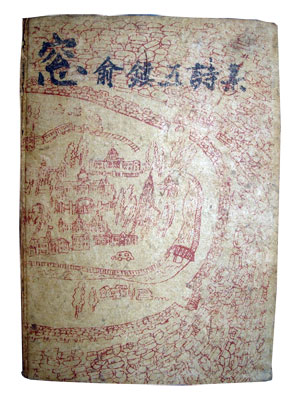 窓 俞鎭五詩集